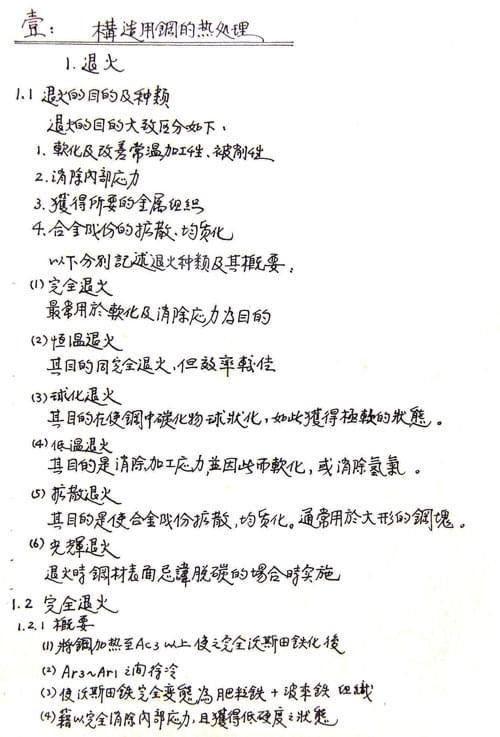 壹： 構造用鋼的热处理
1. 退火
1.1 退火的目的及种類
退火的目的大致区分如下，
1. 軟化及改善常温加工性、被削性
2. 消除内部応力
3. 獲得所要的金属组织
4. 合金成份的扩散、均质化
以下分別記述退火种類及其概要。
(1) 完全退火
最常用於軟化及消除応力為目的
(2) 恒温退火
其目的同完全退火，但效率較佳
(3) 球化退火
其目的在使鋼中碳化物球狀化，如此獲得極軟的狀態。
(4) 低温退火
其目的是消除加工応力並因此而軟化，或消除氢氣。
(5) 扩散退火
其目的是使合金成份扩散，均质化。通常用於大形的鋼塊。
(6) 光輝退火
退火時鋼材表面忌諱脱碳的場合時实施
1.2 完全退火
1.2.1 概要
(1) 將鋼加热至Ac3以上使之完全沃斯田鉄化後
(2) Ar3~Ar1之间徐冷
(3) 使沃斯田鉄完全变態為肥粒鉄+波来鉄组織
(4) 藉以完全消除内部応力，且獲得低硬度之狀態